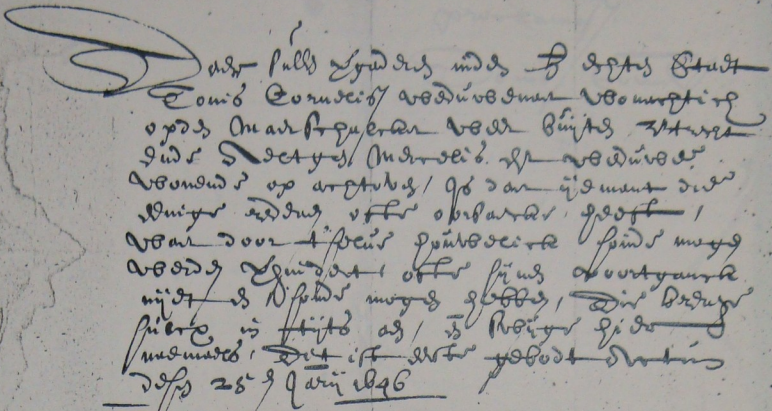 Daer sullen vergaderen inden H echten Staet
Tonis Cornelisz weduwenaer woonachtich
opden Maerschalcker weer buijten Utrecht
ende Neeltgen Mercelis weduwe
wonende op achtoven, Is daer ijemant die
eenige redenen ofte oorsaecke heeft,
waer door t'selve houwelick soude mogen
werden verhindert ofte sijnen voortganck
nijet en soude mogen hebben, Die brenge
sulcx in tijts aen, en swijge hier
naemaels, Dit ist eerste gebodt Actum
desen 25 en Janrij 1646